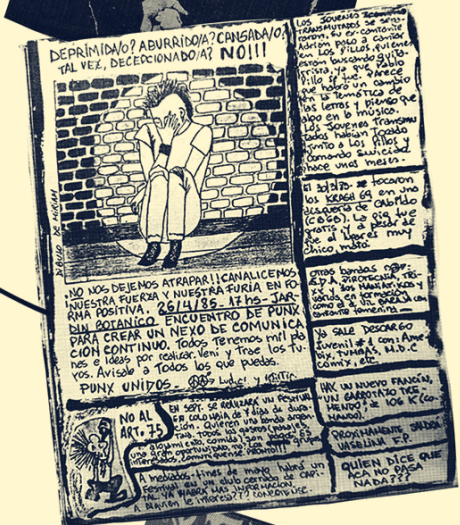 DEPRIMIDA/O? ABURRIDO/A? CANSADA/O?
TAL VEZ, DECEPCIONADO/A? NO!!!
DIBUJO DE MIRIAM
¡NO NOS DEJEMOS ATRAPAR!! CANALICEMOS
NUESTRA FUERZA Y NUESTRA FURIA EN FO-
RMA POSITIVA. 26/4/85-17hs-JAR-
DIN BOTANICO ENCUENTRO DE PUNX
PARA CREAR UN NEXO DE COMUNICA
CION CONTINUO. Todos Tenemos mil pla
nes e ideas por realizar. Vení y Trae los tu-
yos. Avisale a Todos los que puedas.
PUNX UNIDOS.
NO AL
ART. 75
EN SEPT. SE REALIZARA UN FESTIVAL
EN COLOMBIA de 4 días de dura-
ción. Quieren una banda argen
tina. Todos los gastos (pasajes,
alojamiento, comida) son pagos. Es
una gran oportunidad. Los grupos
interesados, comuníquense PRONTO!!!
A mediados-fines de mayo habrá un
festival en un club cerrado de CAPI-
TAL. YA HABRÁ MAS INFORMACION.
A alguien le interesa??? COMUNIQUENSE.
LOS JOVENES
TRANSMUTADOS se sepa-
raron, su ex-cantante
Adrian pasó a cantar
EN LOS PILLOS, quienes
están buscando guita-
rrista, ya que Pablo
Pillo se fue. Parece
que habrá un cambio
en la Temática de
las letras y pienso que
algo en la música.
Los Jovenes Transmu
Tados habían Tocado
junto a Los Pillos y
Comando Suicida
hace unos meses.
tocaron
LOS KRASH 69 en una
disquería de CABILDO
(CBGB). La gig fue
gratis y a pesar de
que el lugar es muy
chico, mató
otras bandas
PIROTECNIA
varias en formación
como
cantante femenina
YA SALE DESCARGO
juvenil #1 con: Ame
bix, TUMBAS, M.D.C
comix, etc.
HAY UN NUEVO FANCIN,
UN GARROTAZO TRE-
MENDO! 106 K (CO-
MANDO).
PROXIMAMENTE SANDRA
VASELINA F.P.
QUIEN DICE QUE
ACA NO PASA
NADA???